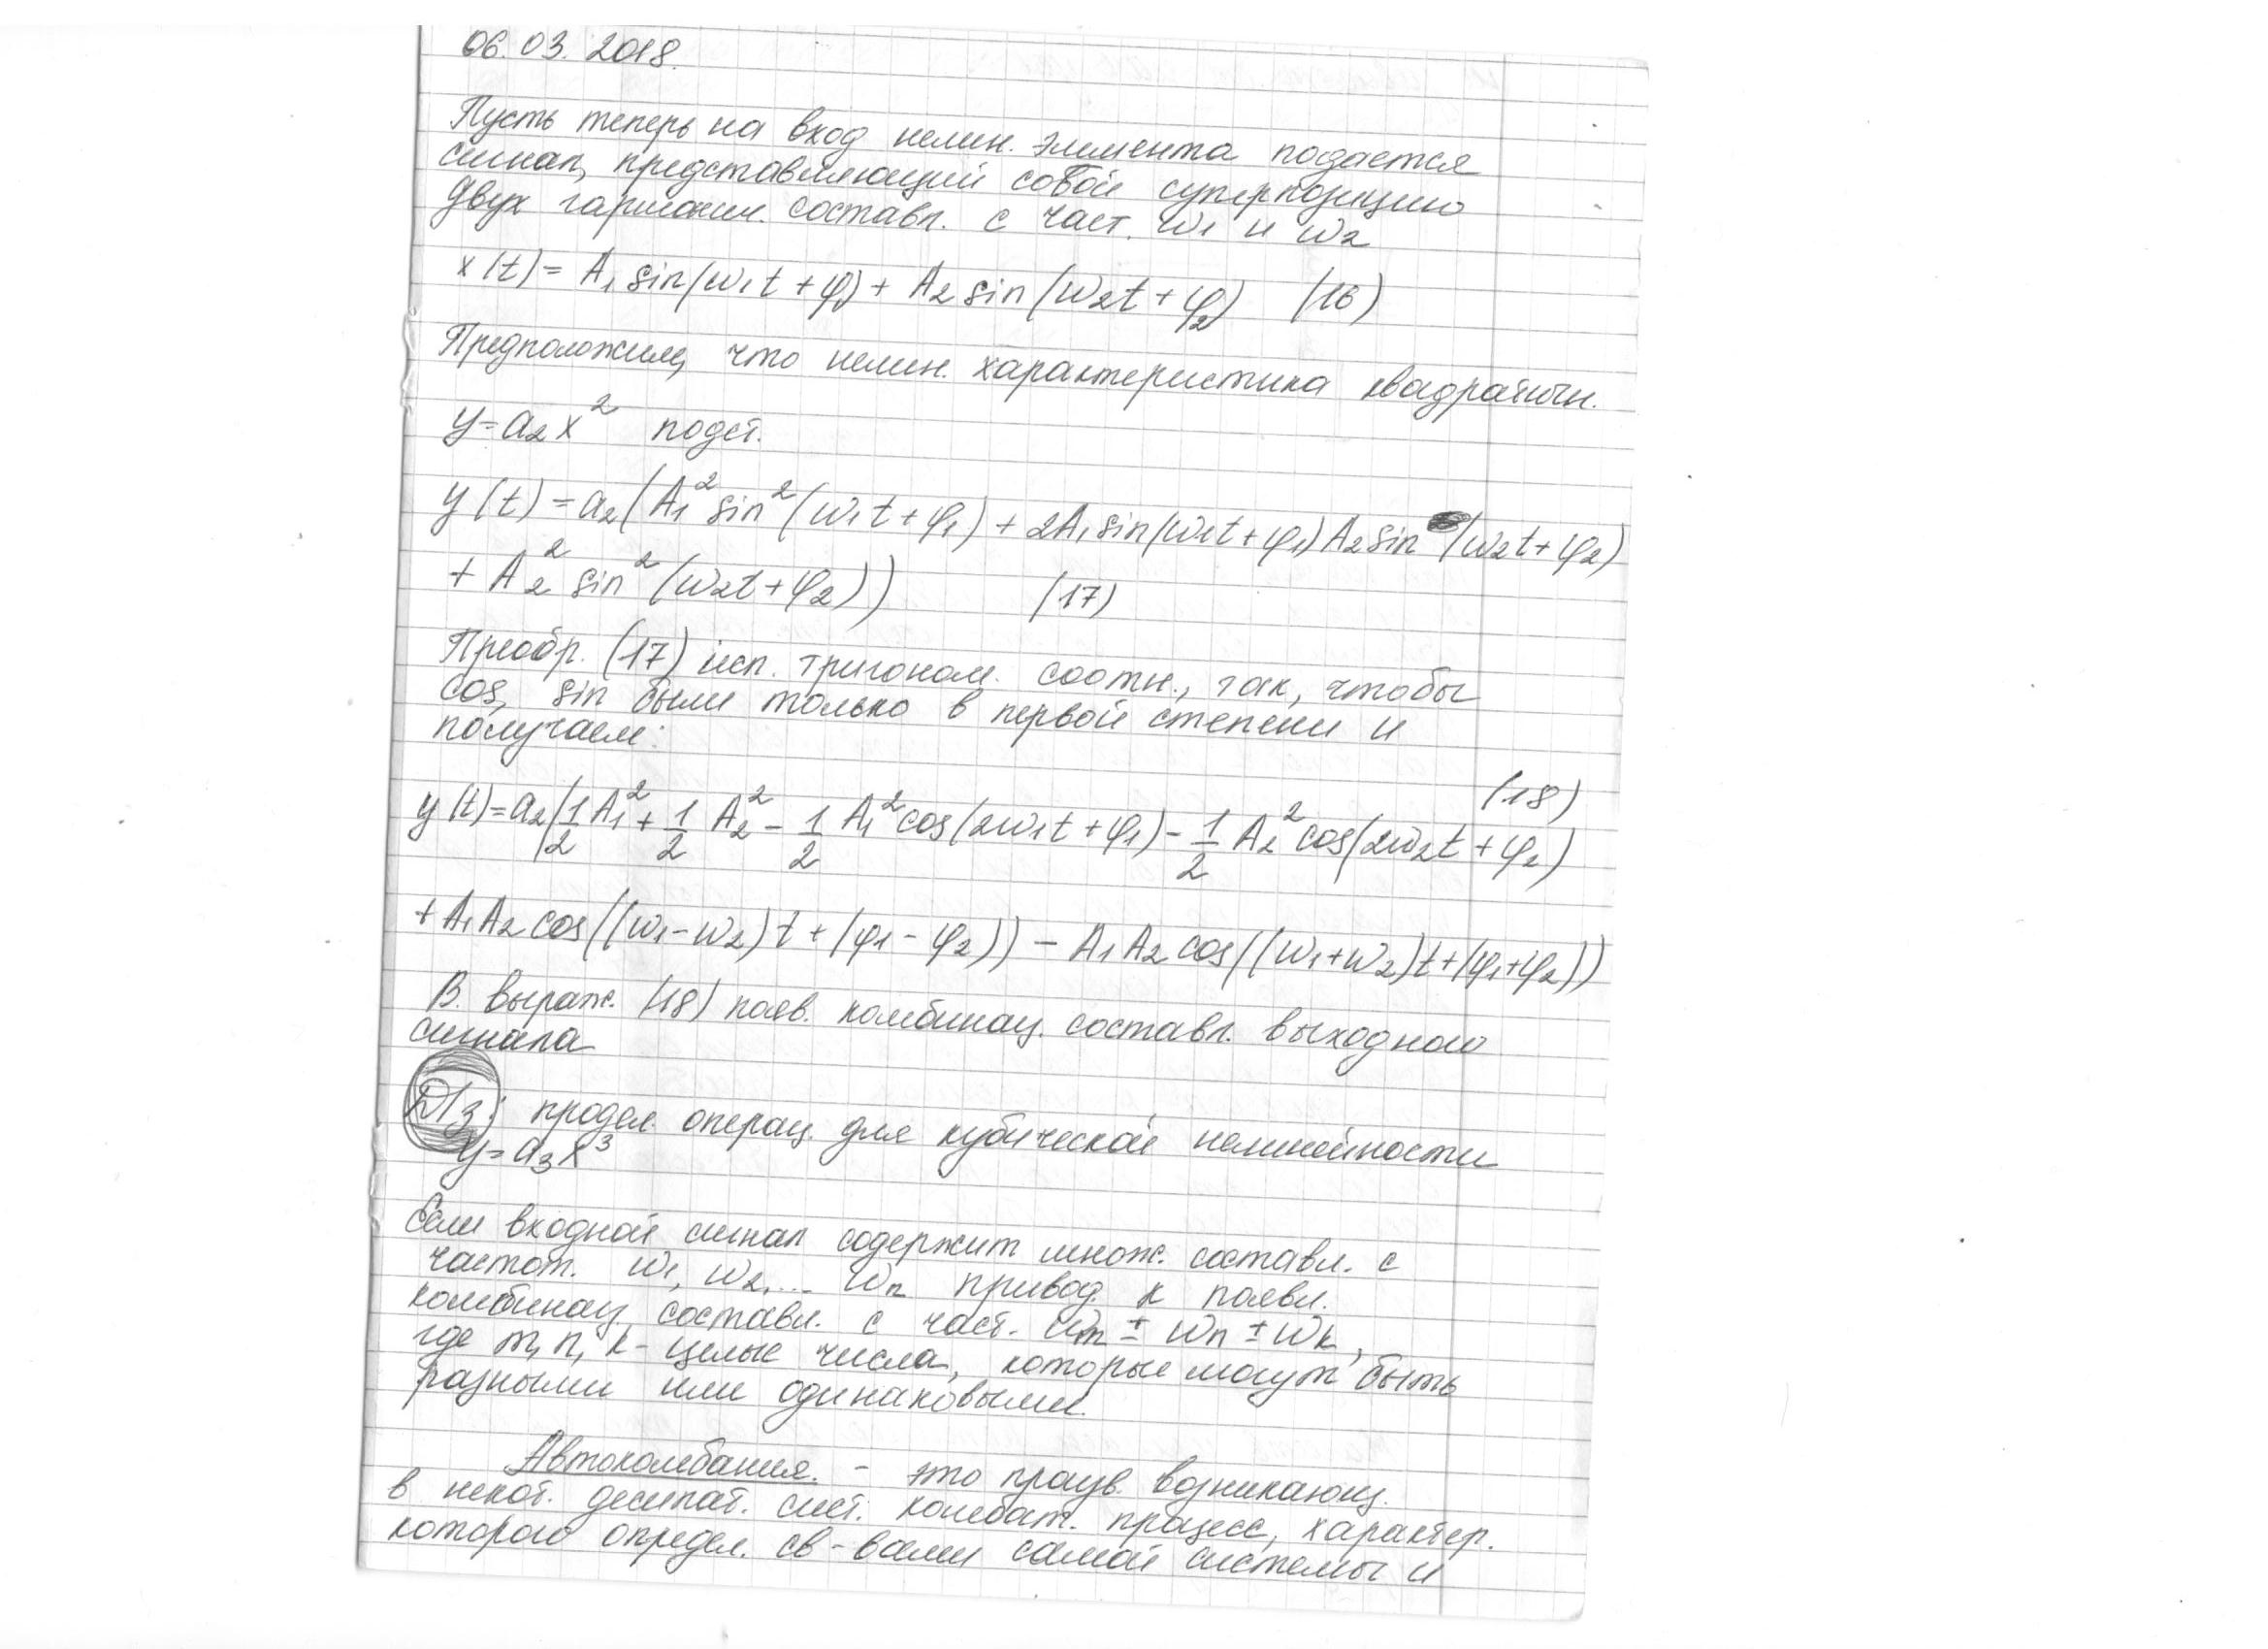 06.03.2018.
Пусть теперь на вход нелин. элемента подается
сигнал, представляющий собой суперпозицию
двух гармонич. составл. с част. ω₁ и ω₂
x(t)= A₁ sin(ω₁t + φ₁) + A₂ sin(ω₂t + φ₂) (16)
Предположим, что нелин. характеристика квадратичн.
y=a₂x² подст.
y(t)=a₂(A₁² sin²(ω₁t+φ₁) + 2A₁ sin(ω₁t+φ₁) A₂ sin(ω₂t+φ₂)
+ A₂² sin²(ω₂t+φ₂)) (17)
Преобр. (17) исп. тригоном. соотн., так, чтобы
cos, sin были только в первой степени и
получаем:
(18)
y(t)=a₂(1/2 A₁² + 1/2 A₂² - 1/2 A₁² cos(2ω₁t+φ₁) - 1/2 A₂² cos(2ω₂t+φ₂)
+ A₁A₂ cos((ω₁-ω₂)t+(φ₁-φ₂)) - A₁A₂ cos((ω₁+ω₂)t+(φ₁+φ₂))
В. выраж. (18) появ. комбинац. составл. выходного
сигнала
Д/з: продел. операц. для кубической нелинейности
y=a₃x³
Если входной сигнал содержит множ. составл. с
частот. ω₁, ω₂, ... ωn привод. к появл.
комбинац. составл. с част. ωm ± ωn ± ωk,
где m, n, k - целые числа, которые могут быть
разными или одинаковыми.
Автоколебания. - это возникающ.
в некот. диссипат. сист. колебат. процесс, характер.
которого определ. св-вами самой системы и